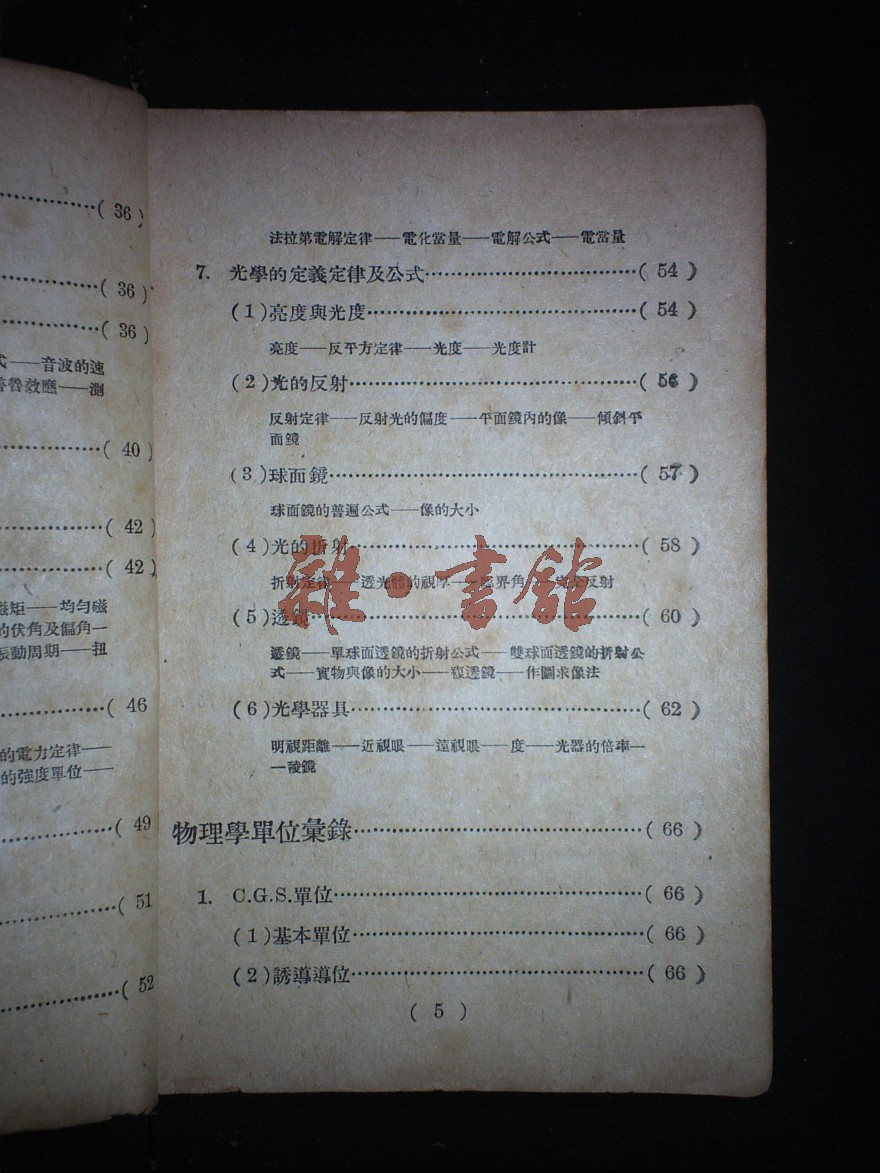 (36)
(36)
(36)
式——音波的速
普魯效應——測
(40)
(42)
(42)
磁矩——均匀磁
的伏角及偏角—
振動周期——扭
(46)
的電力定律——
的强度單位——
(49)
(51)
(52)
法拉第電解定律——電化當量——電解公式——電當量
7. 光學的定義定律及公式……(54)
(1)亮度與光度……(54)
亮度——反平方定律——光度——光度計
(2)光的反射……(56)
反射定律——反射光的偏度——平面鏡內的像——傾斜平
面鏡
(3)球面鏡……(57)
球面鏡的普遍公式——像的大小
(4)光的折射……(58)
折射定律——透光體的視厚——臨界角——完全反射
(5)透鏡……(60)
透鏡——單球面透鏡的折射公式——雙球面透鏡的折射公
式——實物與像的大小——複透鏡——作圖求像法
(6)光學器具……(62)
明視距離——近視眼——遠視眼——度——光器的倍率—
—稜鏡
物理學單位彙錄……(66)
1. C.G.S.單位……(66)
(1)基本單位……(66)
(2)誘導導位……(66)
(5)
雜·書館